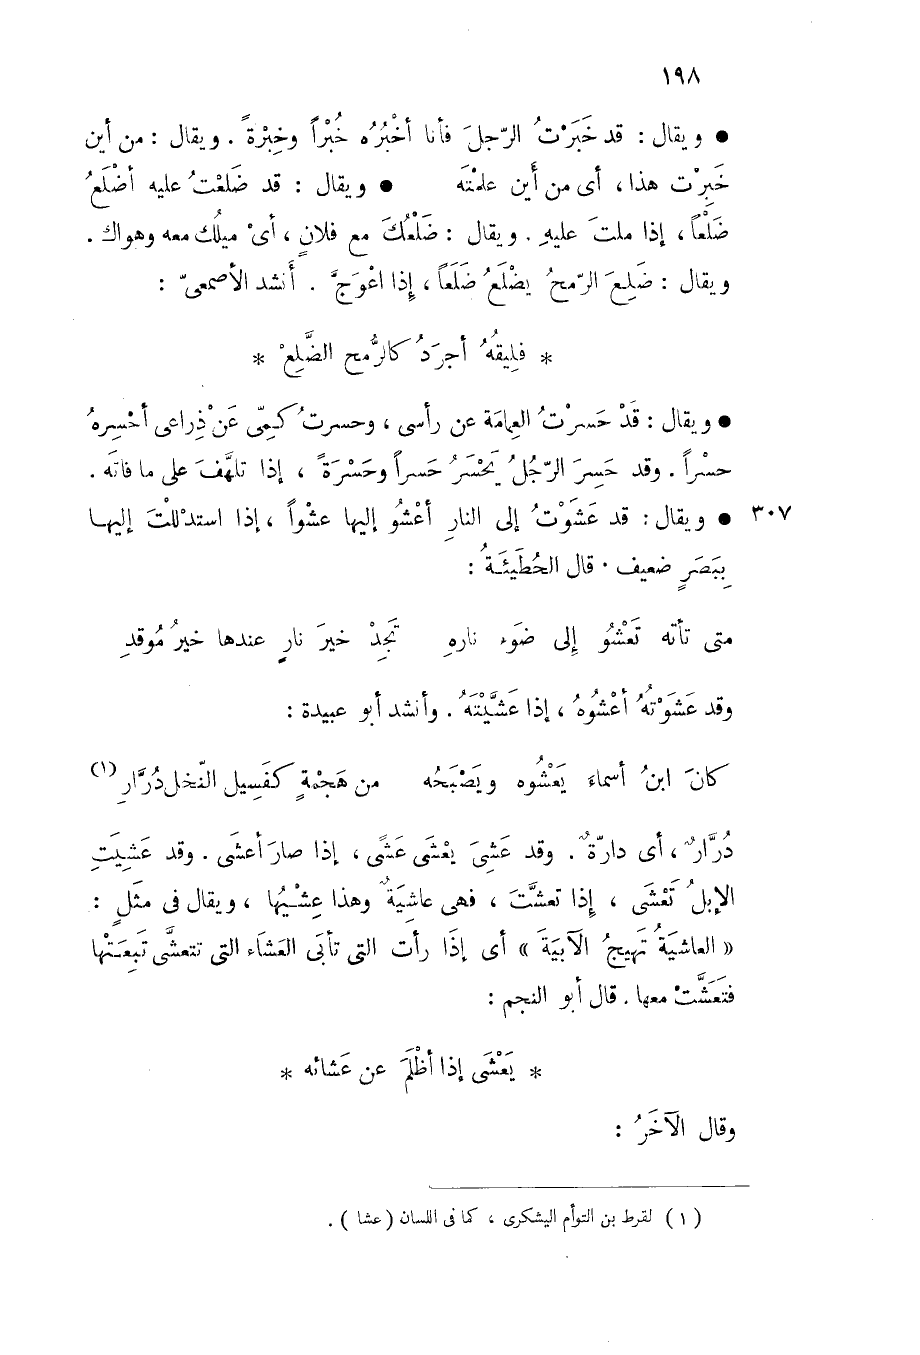 ١٩٨
● ويقال : قد خَبَرْتُ الرّجلَ فأنا أخْبُرُه خُبْراً وخِبْرةً . ويقال : من أين
خَبِرْت هذا ، أى من أَين علمْتَه ● ويقال : قد ضَلَعْتُ عليه أضْلَعُ
ضَلْعاً ، إذا ملتَ عليهِ . ويقال : ضَلْعُكَ مع فلانٍ ، أىْ ميلُك معه وهواك .
ويقال : ضَلِعَ الرّمحُ يضْلَعُ ضَلَعاً ، إِذا اعْوَجَّ . أَنشد الأصمعىّ :
* فلِيقُهُ أجرَدُ كالرُّمح الضَّلِعْ *
● ويقال : قَدْ حَسرْتُ العِمامَة عن رأسى ، وحسرتُ كـمِّى عَنْ ذِراعى أحْسِرهُ
حسْراً . وقد حَسِرَ الرّجُلُ يَحْسَرُ حَسراً وحَسْرَةً ، إذا تلهَّفَ على ما فاتَه .
٣٠٧ ● ويقال : قد عَشَوْتُ إلى النارِ أعْشُو إليها عشْواً ، إذا استدْللتَ إليهـا
بِبَصَرٍ ضعيف . قال الحُطَيئَـةُ :
متى تأته تَعْشُو إلى ضوَء نارهِ تَجِدْ خيرَ نارٍ عندها خيرُ مُوقدِ
وقد عَشَوْتهُ أعْشُوهُ ، إذا عَشَّيْتَهُ . وأنشد أبو عبيدة :
كانَ ابنُ أسماءَ يَعْشُوه ويَصْبَحُه من هَجْمةٍ كفَسِيل النّخل دُرَّارِ (١)
دُرَّارٌ ، أى دارّةٌ . وقد عَشِىَ يعْشَى عَشًى ، إذا صارَ أعشَى . وقد عَشِيَتِ
الإبلُ تَعْشَى ، إِذا تعشَّتَ ، فهى عاشِيَةٌ وهذا عِشْـيُها ، ويقال فى مثَلٍ :
« العاشيَةُ تَهِيجُ الآبيَةَ » أى إذَا رأت التى تأبَى العَشاء التى تتعشَّى تَبِعَـتْها
فتَعَشَّتْ معها . قال أبو النجم :
* يَعْشَى إذا أظْلَمَ عن عَشائه *
وقال الآخَرُ :
(١) لقرط بن التوأم اليشكرى ، كما فى اللسان ( عشا ) .